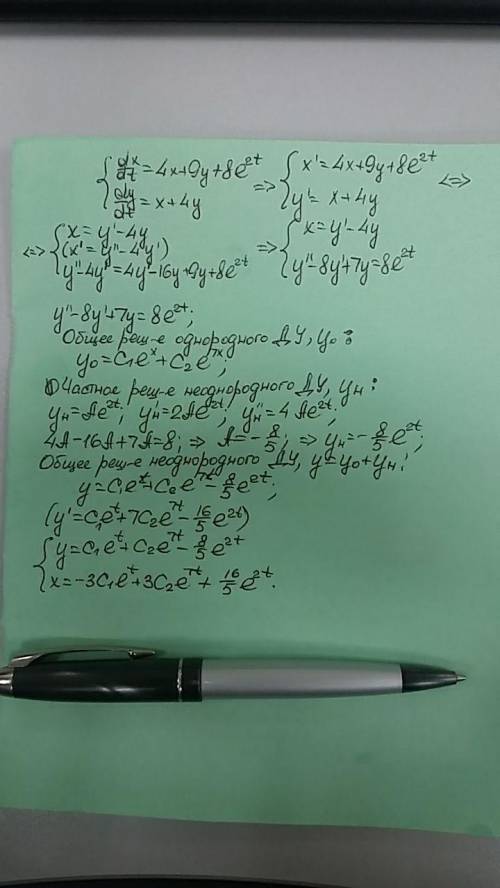 {dx/dt = 4x+9y+8e^2t => {x' = 4x+9y+8e^2t <=>
{dy/dt = x+4y {y' = x+4y
<=> {x = y'-4y => {x = y'-4y
(x' = y''-4y')
y''-4y' = 4y'-16y+9y+8e^2t {y''-8y'+7y = 8e^2t
y''-8y'+7y = 8e^2t;
Общее реш-е однородного ДУ, y₀:
y₀ = C₁e^x + C₂e^7x;
Частное реш-е неоднородного ДУ, yн:
yн = Ae^2t; y'н = 2Ae^2t; y''н = 4Ae^2t;
4A-16A+7A=8; => A = -8/5; => yн = -8/5 e^2t;
Общее реш-е неоднородного ДУ, y = y₀+yн:
y = C₁e^t + C₂e^7t - 8/5 e^2t;
(y' = C₁e^t + 7C₂e^7t - 16/5 e^2t)
{y = C₁e^t + C₂e^7t - 8/5 e^2t
{x = -3C₁e^t + 3C₂e^7t + 16/5 e^2t.